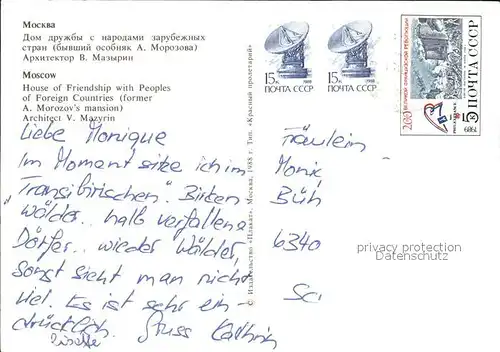 Москва
Дом дружбы с народами зарубежных
стран (бывший особняк А. Морозова)
Архитектор В. Мазырин
Moscow
House of Friendship with Peoples
of Foreign Countries (former
A. Morozov's mansion)
Architect V. Mazyrin
Liebe Monique
Im Moment sitze ich im
"Transibirischen". Birken
wälder.. halb verfallene
Dörfer.. wieder Wälder,
sonst sieht man nicht
viel. Es ist sehr ein-
drücklich. Gruss Kathrin
© Издательство «Плакат». Москва, 1988 г. Тип. «Красный пролетарий»
15к
1988
ПОЧТА СССР
15к
1988
ПОЧТА СССР
200 ВЕЛИКОЙ ФРАНЦУЗСКОЙ РЕВОЛЮЦИИ
PHILEXFRANCE
5к
1989
ПОЧТА СССР
Fräulein
Monik
Büh
6340
privacy protection
Datenschutz